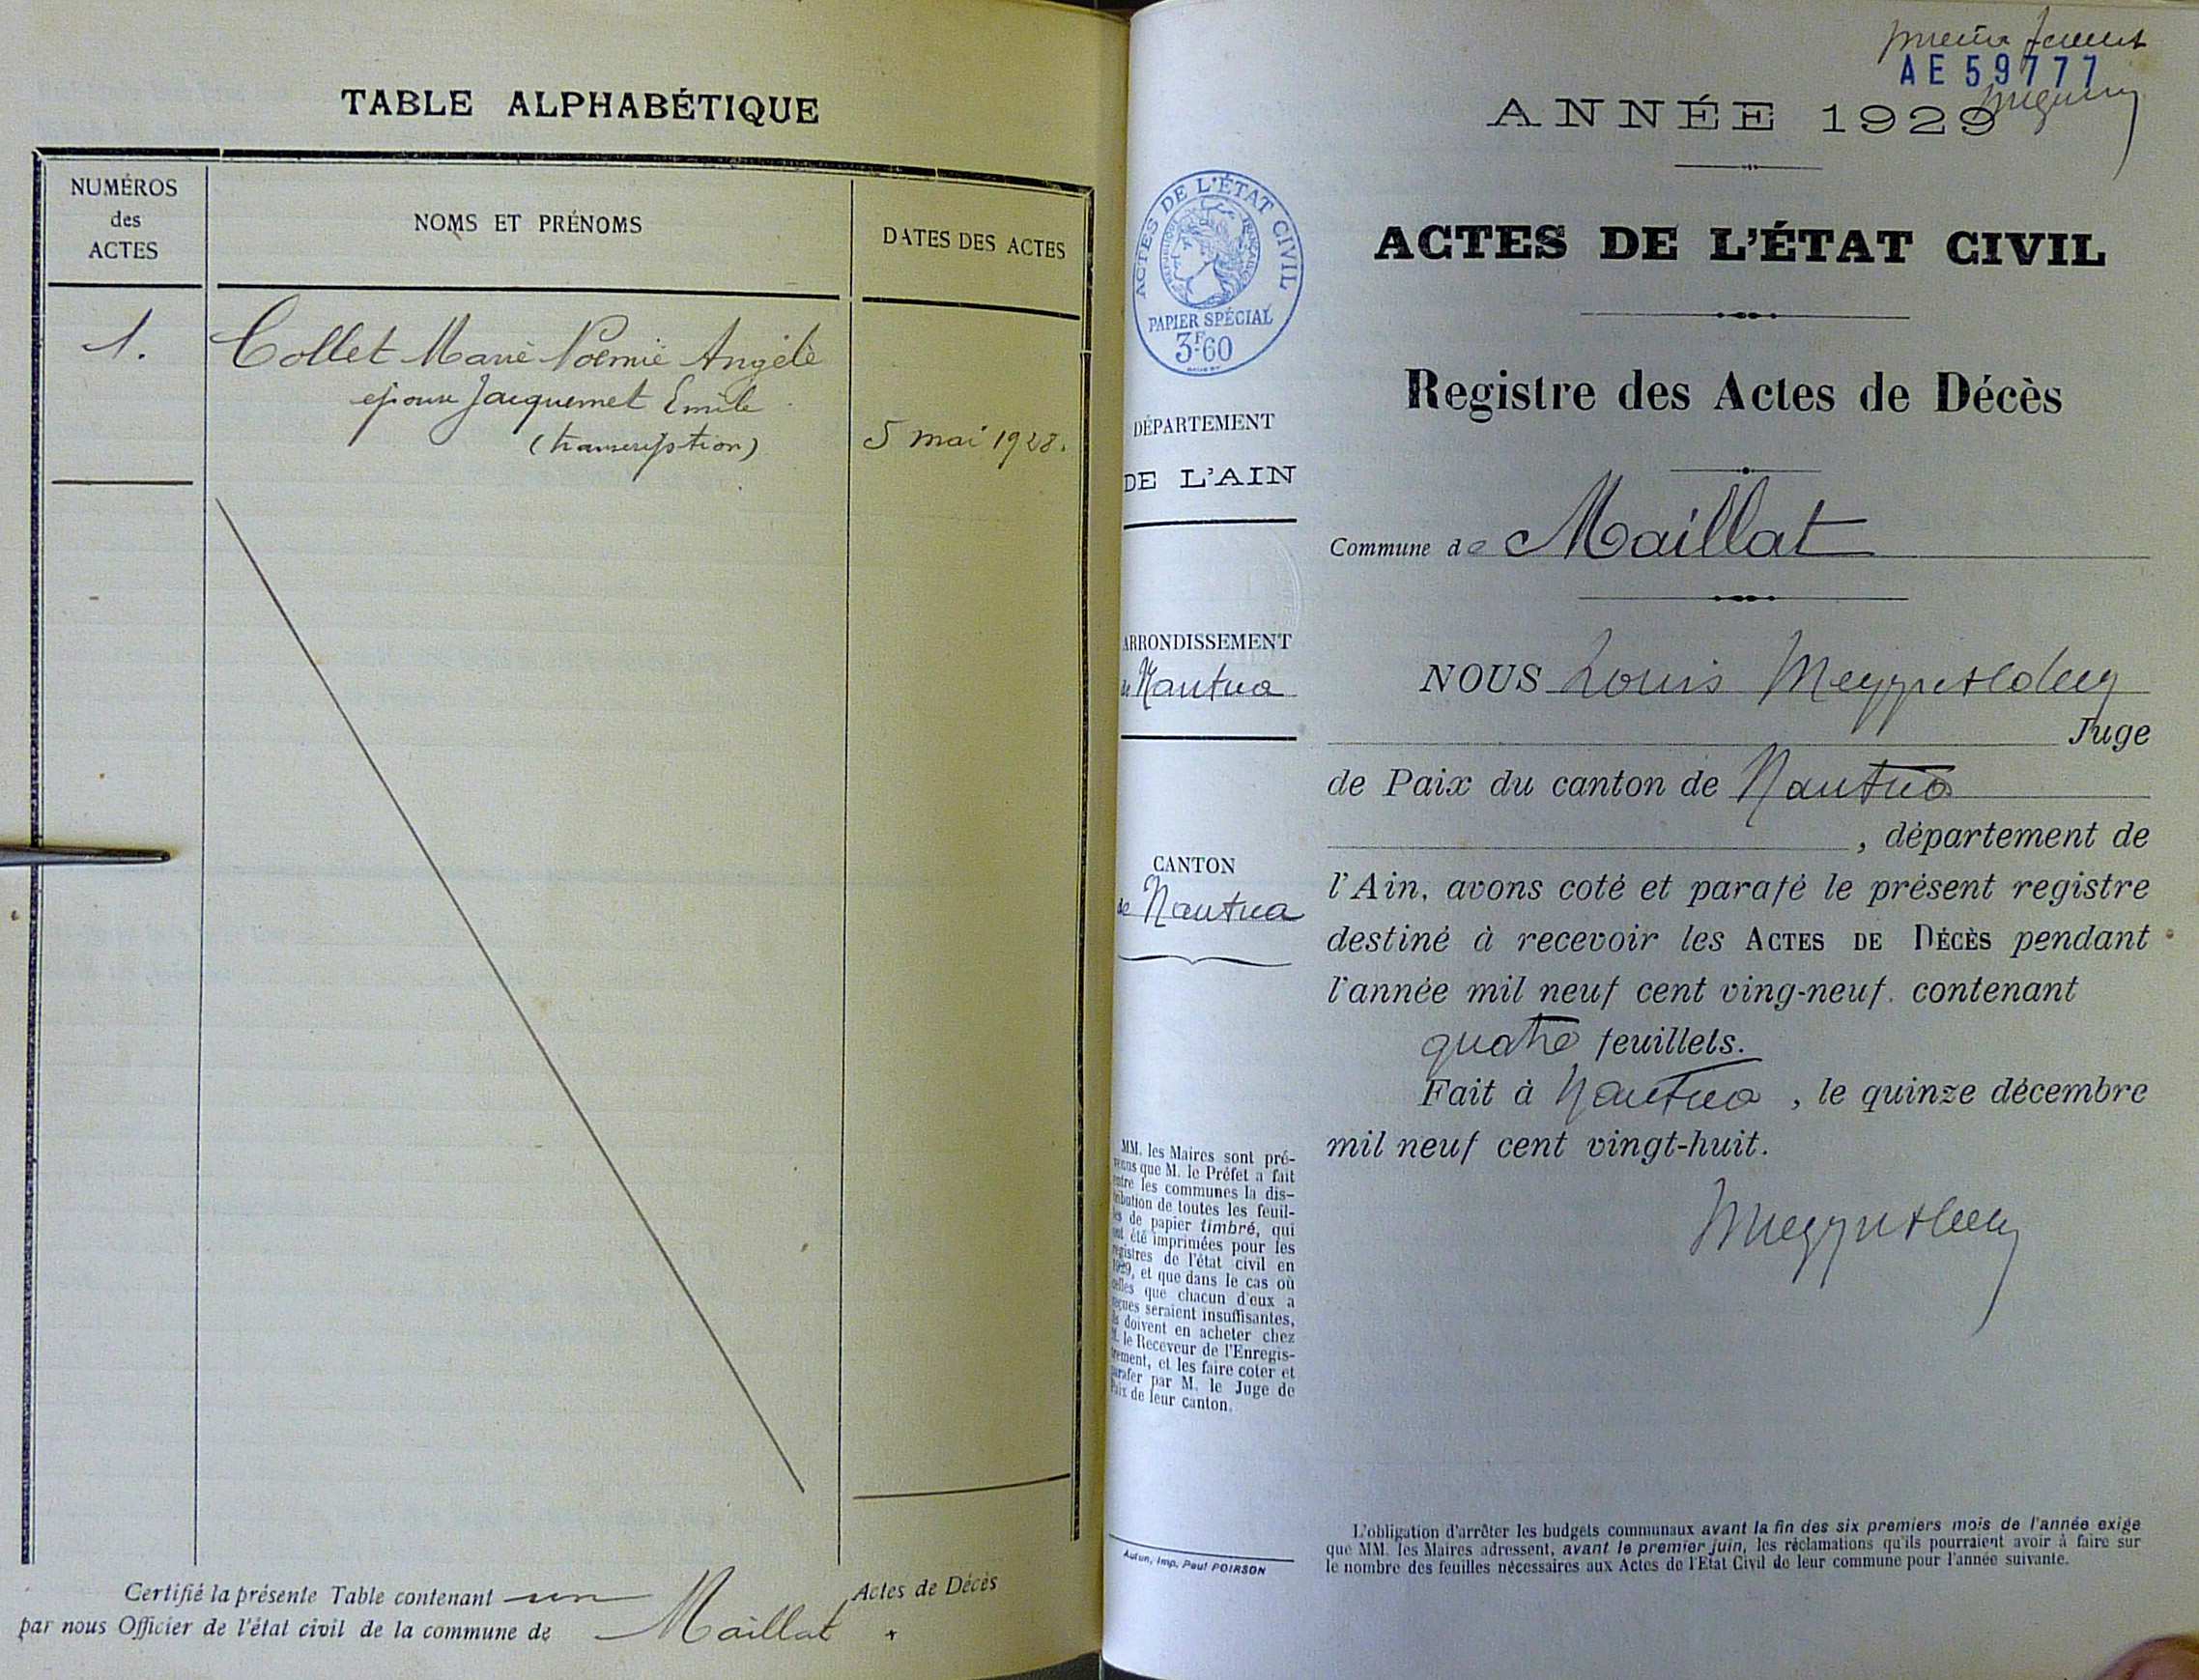 TABLE ALPHABÉTIQUE
NUMÉROS
des
ACTES
NOMS ET PRÉNOMS
DATES DES ACTES
1.
Collet Marie Noémie Angèle
épouse Jacquemet Emile
(transcription)
5 mai 1928.
Certifié la présente Table contenant un Actes de Décès
par nous Officier de l'état civil de la commune de Maillat
AE 59777
ANNÉE 1929
ACTES DE L'ÉTAT CIVIL
RÉPUBLIQUE FRANÇAISE
PAPIER SPÉCIAL
3F60
DÉPARTEMENT
DE L'AIN
ARRONDISSEMENT
de Nantua
CANTON
de Nantua
MM. les Maires sont pré-
venus que M. le Préfet a fait
entre les communes la dis-
tribution de toutes les feuil-
les de papier timbré, qui
ont été imprimées pour les
registres de l'état civil en
1929, et que dans le cas où
celles que chacun d'eux a
reçues seraient insuffisantes,
ils doivent en acheter chez
M. le Receveur de l'Enregis-
trement, et les faire coter et
parafer par M. le Juge de
Paix de leur canton.
Autun, Imp. Paul POIRSON
ACTES DE L'ÉTAT CIVIL
Registre des Actes de Décès
Commune de Maillat
NOUS Louis
Juge
de Paix du canton de Nantua
, département de
l'Ain, avons coté et parafé le présent registre
destiné à recevoir les ACTES DE DÉCÈS pendant
l'année mil neuf cent ving-neuf. contenant
quatre feuillets.
Fait à Nantua, le quinze décembre
mil neuf cent vingt-huit.
L'obligation d'arrêter les budgets communaux avant la fin des six premiers mois de l'année exige
que MM. les Maires adressent, avant le premier juin, les réclamations qu'ils pourraient avoir à faire sur
le nombre des feuilles nécessaires aux Actes de l'Etat Civil de leur commune pour l'année suivante.